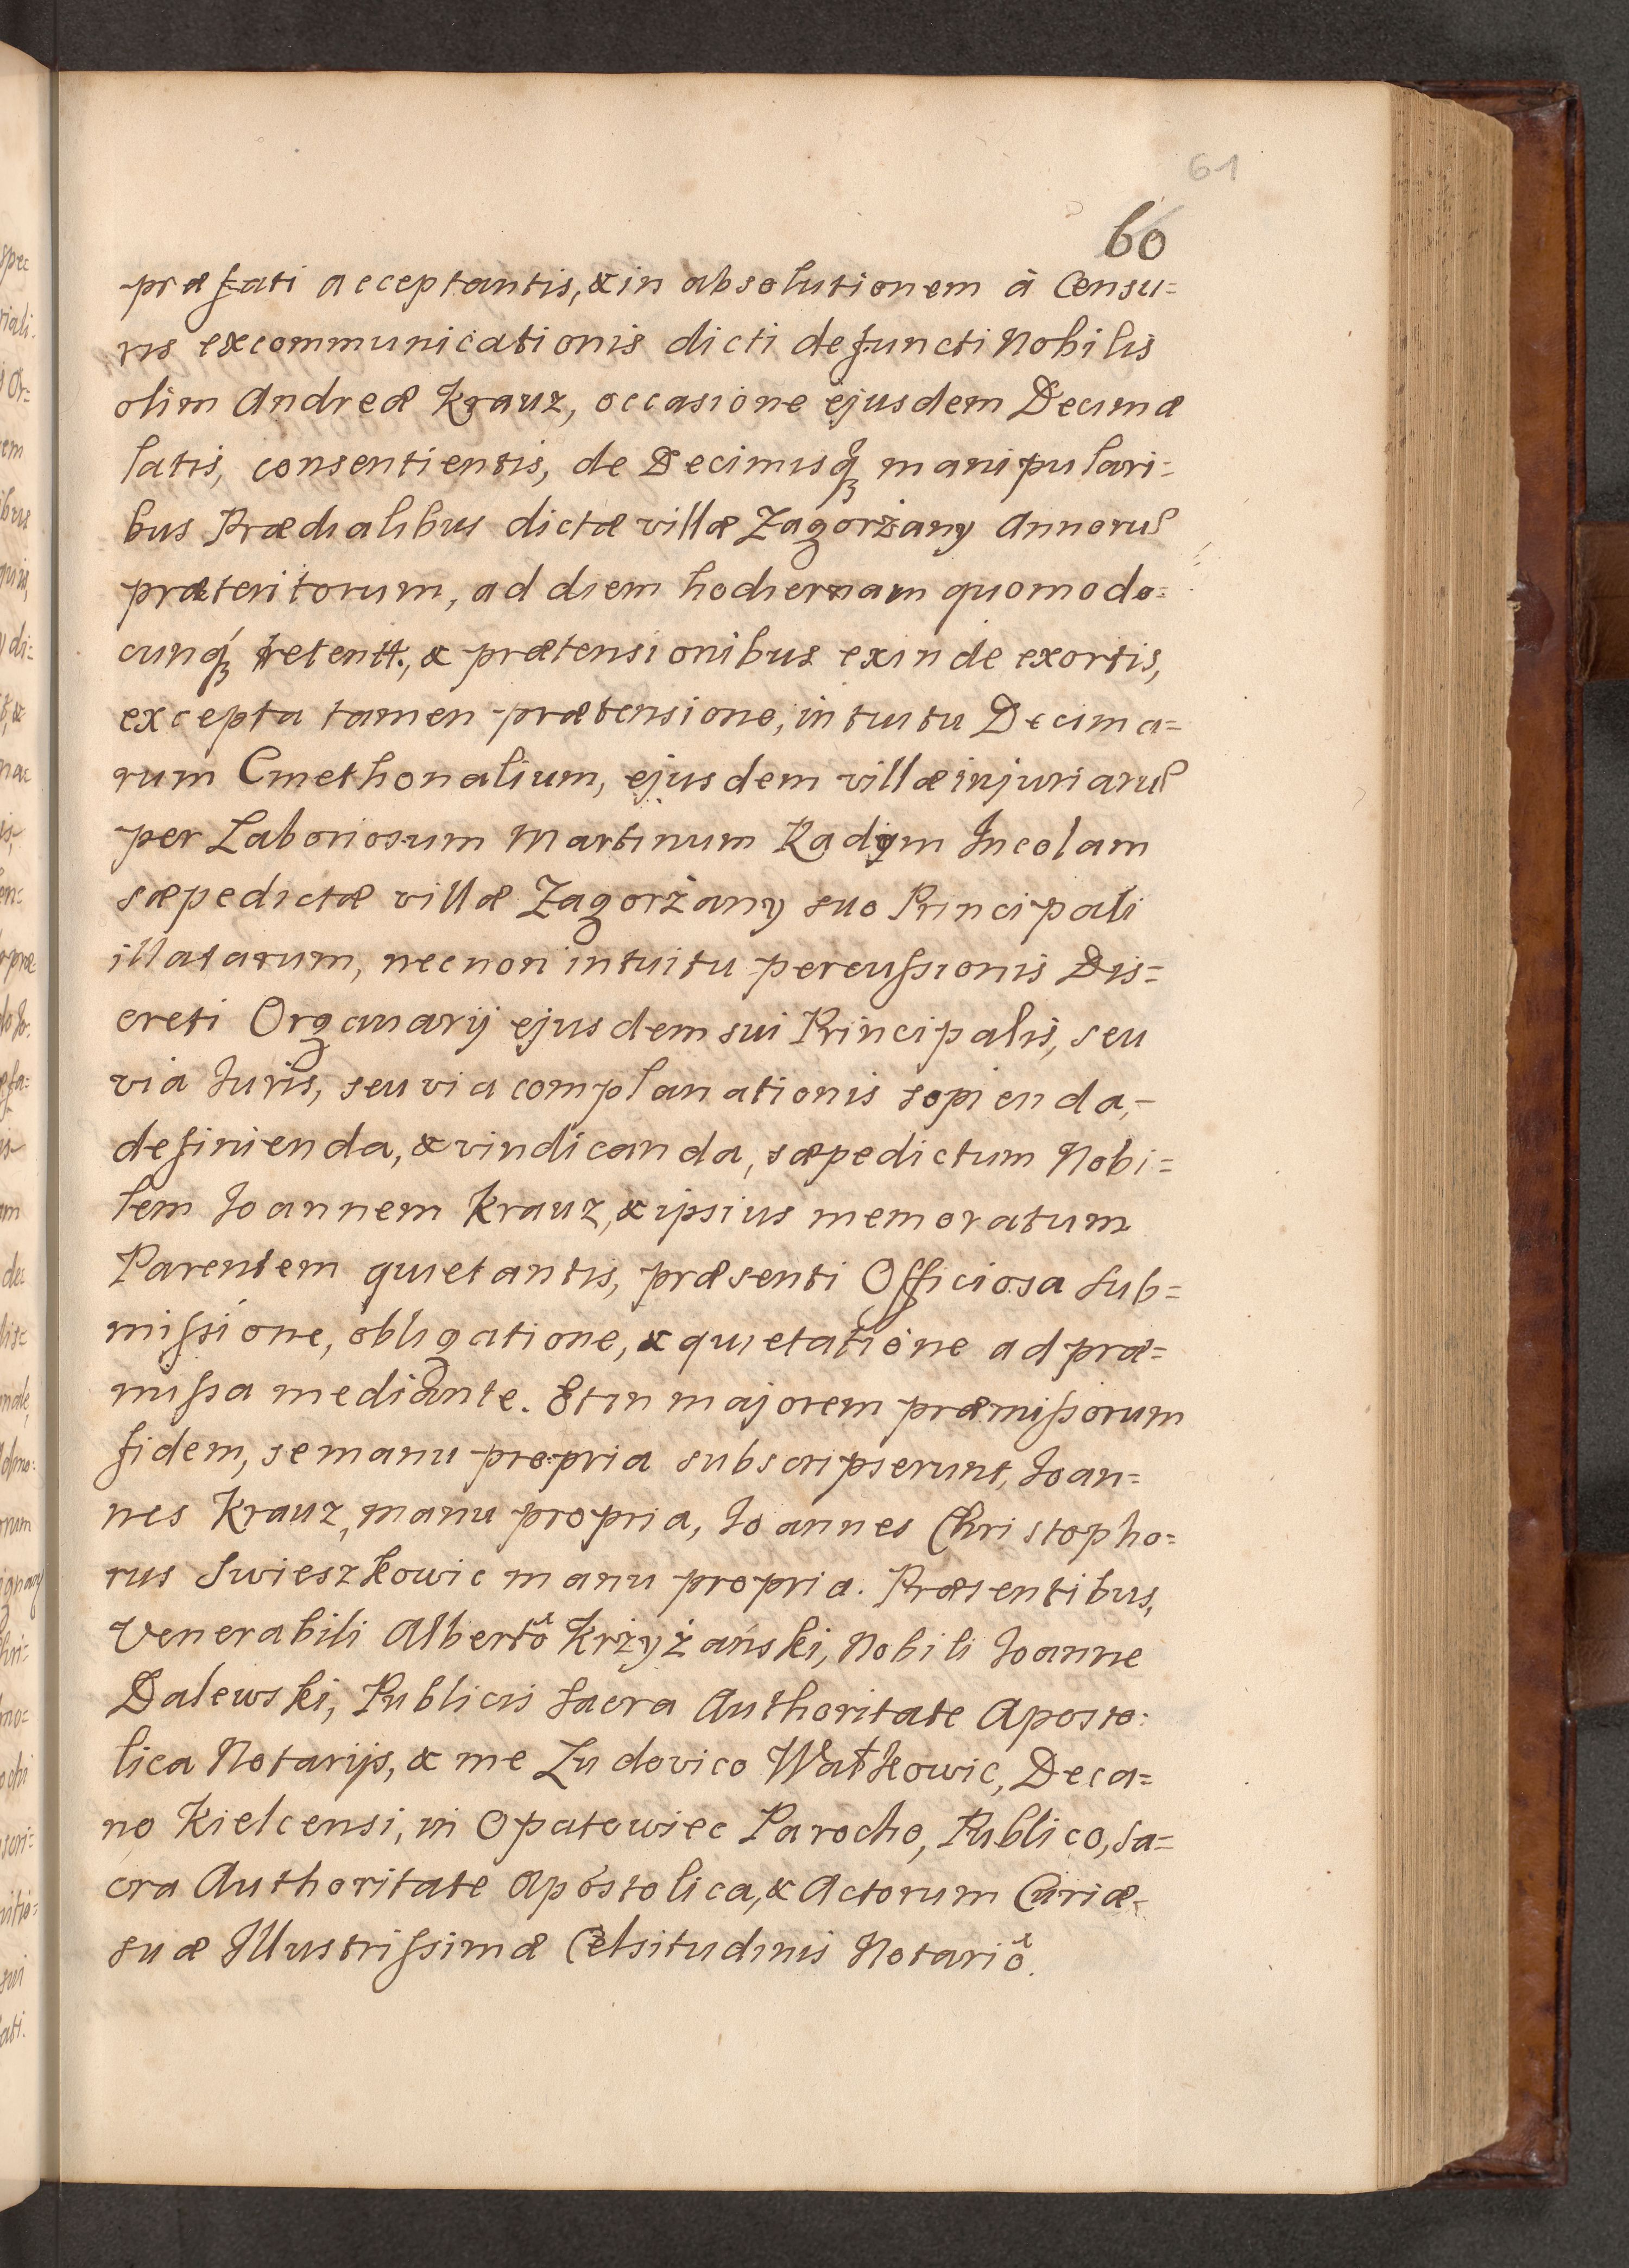 61
60
præfati acceptantis, & in absolutionem à Censu=
ris excommunicationis dicti defuncti Nobilis
olim Andreæ Krauz, occasione ejusdem Decimæ
latis, consentientis, de Decimisq́ʒ manipulari=
bus Prædialibus dictæ villæ Zagorżany Annorũ
præteritorum, ad diem hodiernam quomodo=
cunq́ʒ retentt., & prætensionibus exinde exortis,
excepta tamen prætensione, intuitu Decima=
rum Cmethonalium, ejusdem villæ injuriarũ
per Laboriosum Martinum Radym Incolam
sæpedictæ villæ Zagorżany suo Principali
illatarum, necnon intuitu percussionis Dis=
creti Organarij ejusdem sui Principalis, seu
via Juris, seu via complanationis sopienda,
definienda, & vindicanda, sæpedictum Nobi=
lem Joannem Krauz, & ipsius memoratum
Parentem quietantis, præsenti Officiosa sub=
missione, obligatione, & quietatione ad præ=
missa mediante. Et in majorem præmissorum
fidem, se manu propria subscripserunt, Joan=
nes Krauz, manu propria, Joannes Christopho=
rus Swieszkowic manu propria. Præsentibus,
Venerabili Albertô Krżyżański, Nobili Joanne
Dalewski, Publicis sacra Authoritate Aposto=
lica Notarijs, & me Ludovico Wałkowic, Deca=
no Kielcensi, in Opatowiec Parocho, Publico, sa=
cra Authoritate Apostolica, & Actorum Curiæ
suæ Illustrissimæ Celsitudinis Notariô.